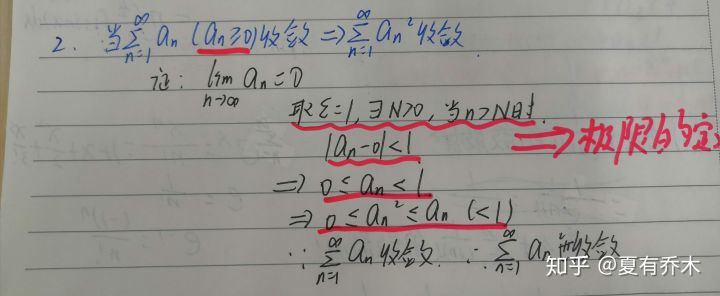 2. 当∑_{n=1}^{∞} a_n (a_n≥0)收敛 ⇒ ∑_{n=1}^{∞} a_n² 收敛.
证: lim_{n→∞} a_n=0
取ε=1, ∃N>0, 当n>N时.
|a_n-0|<1 ⇒ 极限的定
⇒ 0≤a_n<1
⇒ 0≤a_n²≤a_n (<1)
∵ ∑_{n=1}^{∞} a_n 收敛. ∴ ∑_{n=1}^{∞} a_n² 收敛
知乎 @夏有乔木